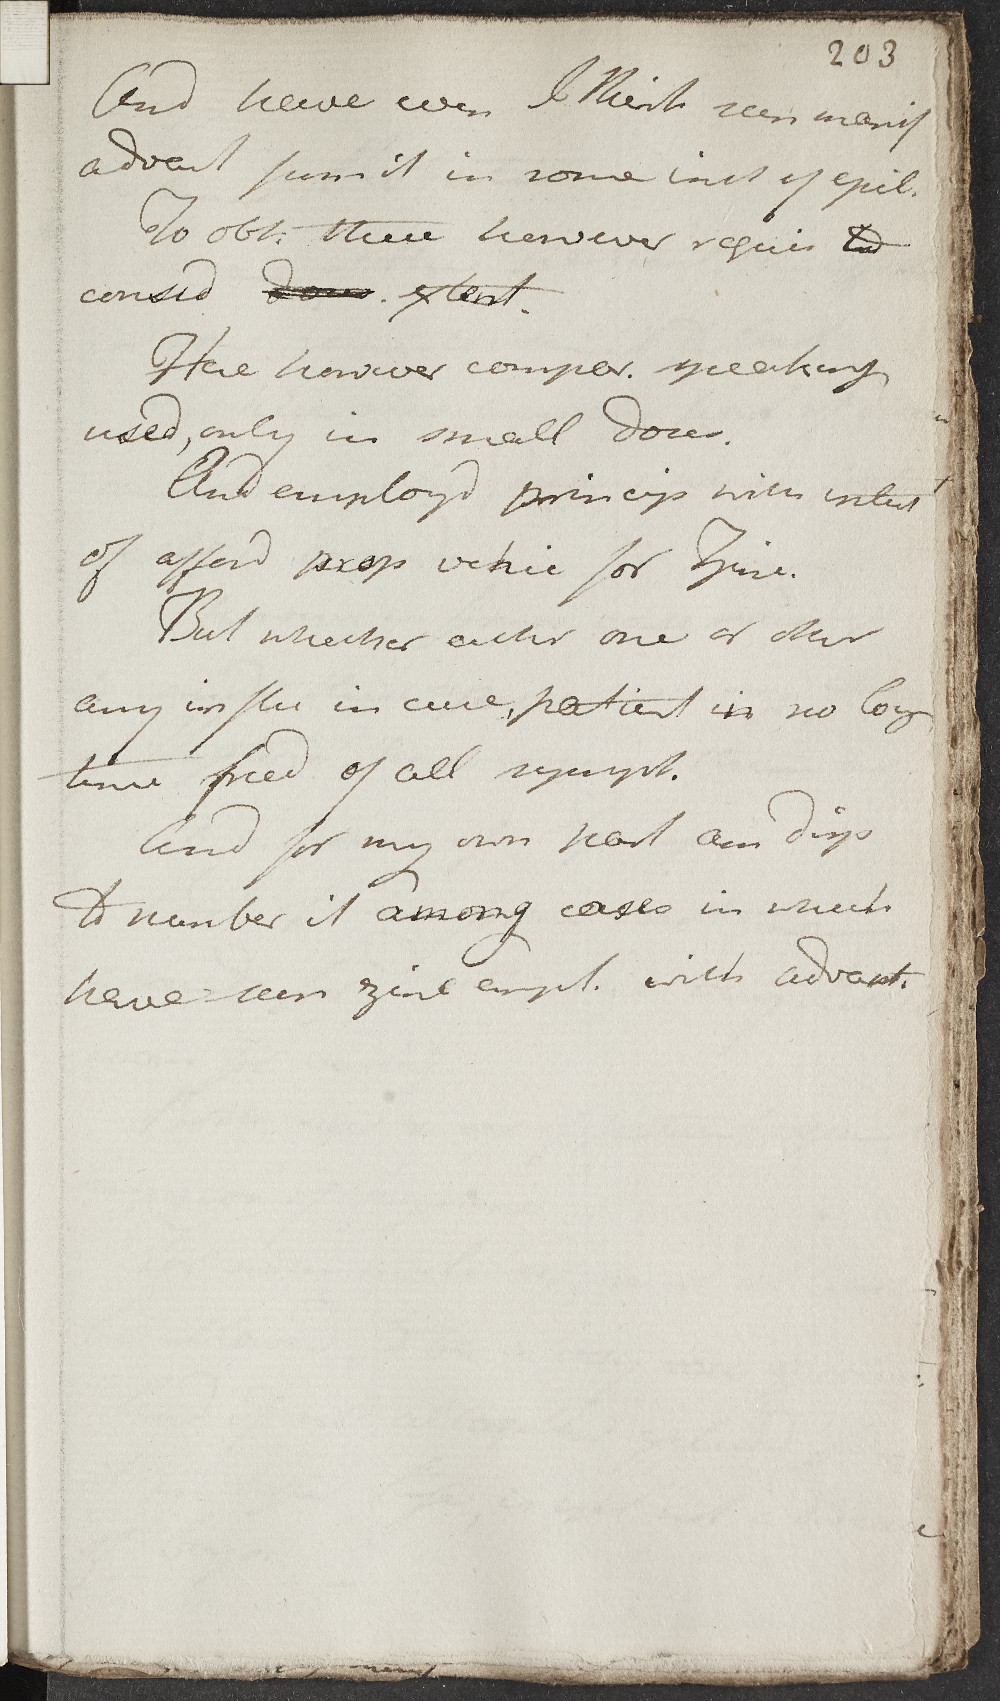 203
And have even I think seen manif
advant from it in some inst of epil.
To obt. these however requir to
consid dose. extent.
Here however compar. speaking
used, only in small doses.
And employd princip with intent
of afford prop vehic for Zinc.
But whether either one or other
any influ in cure, patient in no long
time freed of all sympt.
And for my own part am disp
to number it among cases in which
have seen zinc empl. with advant.